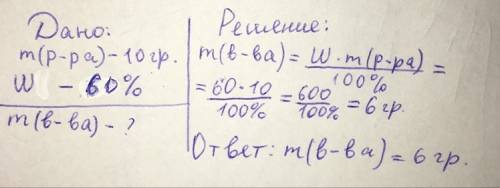 Дано:
m(р-ра) - 10 гр.
W - 60%
m(в-ва) - ?
Решение:
m(в-ва) = W · m(р-ра) / 100% =
= 60 · 10 / 100% = 600 / 100% = 6 гр.
Ответ: m(в-ва) = 6 гр.